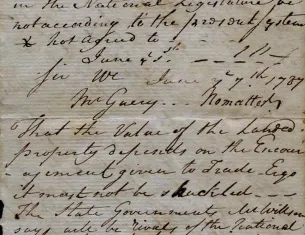 in the National Legislature be
not according to the present system
& not Agreed to
June
June 7th 1787
That the Value of the Landed
property depends on the Encour
agement given to Trade Ergo
it must not be shackled
The State Governments Mr Willson
says will be Rivals of the National